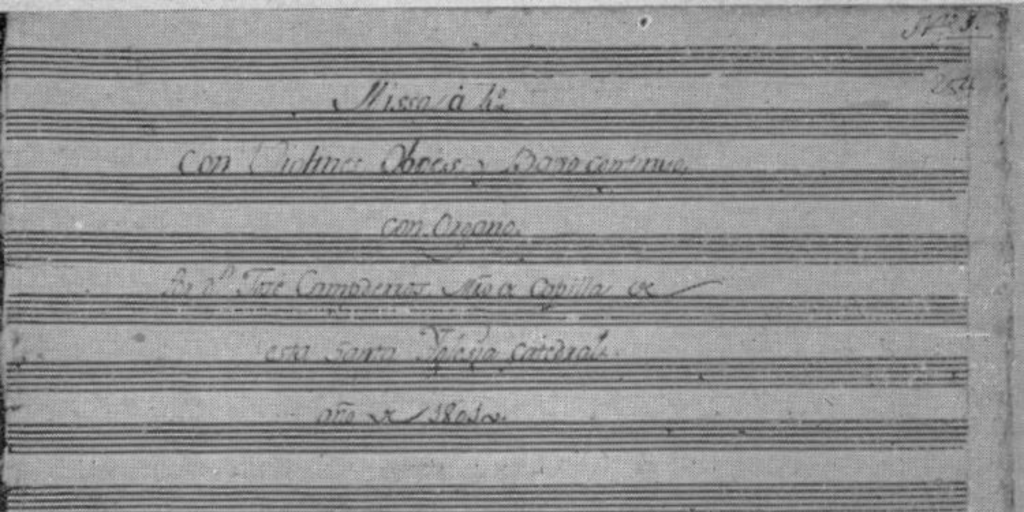 254
Missa à 4º
Con Violines Oboes y Baxo continuo,
con Organo.
De Dⁿ José Campderros Mrō de Capilla de
esta Santa Yglesia Catedral.
año de 1801